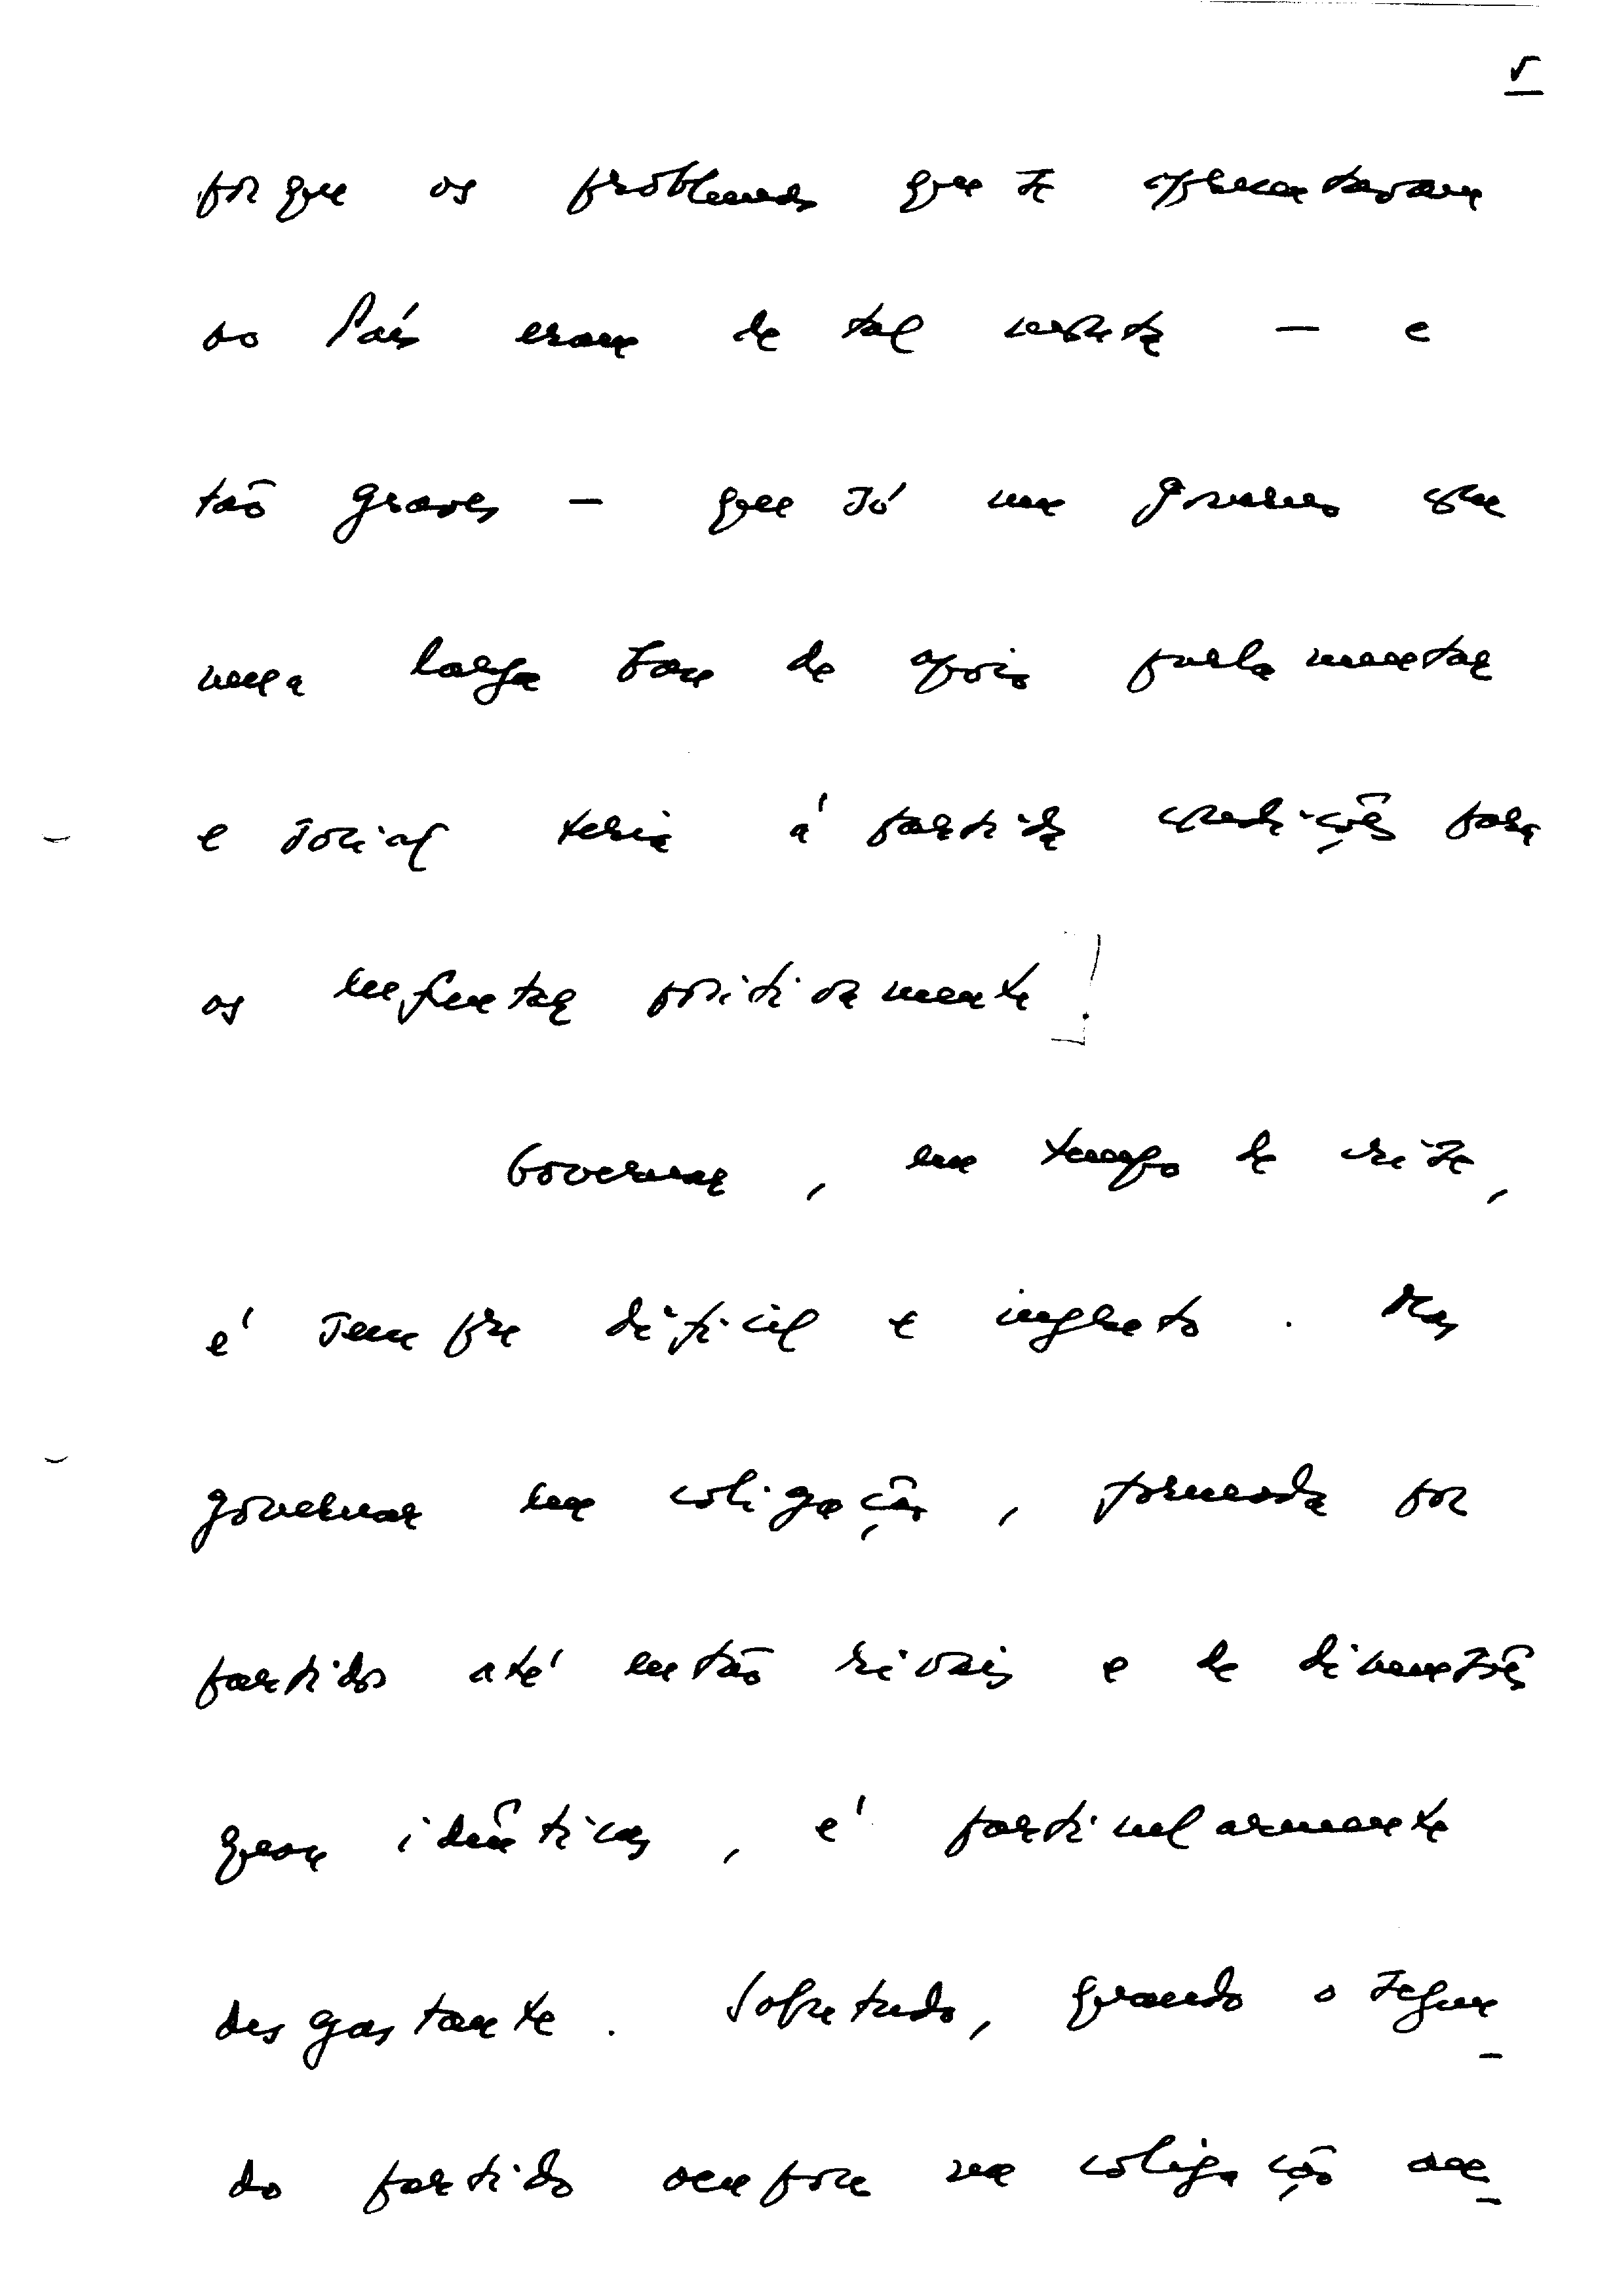 5
porque os problemas que se apresentavam
ao País eram de tal monta — e
tão graves — que só um governo com
uma larga base de apoio parlamentar
e social teria à partida condições para
os enfrentar positivamente!
Governar, em tempo de crise,
é sempre difícil e ingrato. Mas
governar em coligação, formada por
partidos até então rivais e de dimensões
quase idênticas, é particularmente
desgastante. Sobretudo, quando o segun-
do partido que põe na coligação